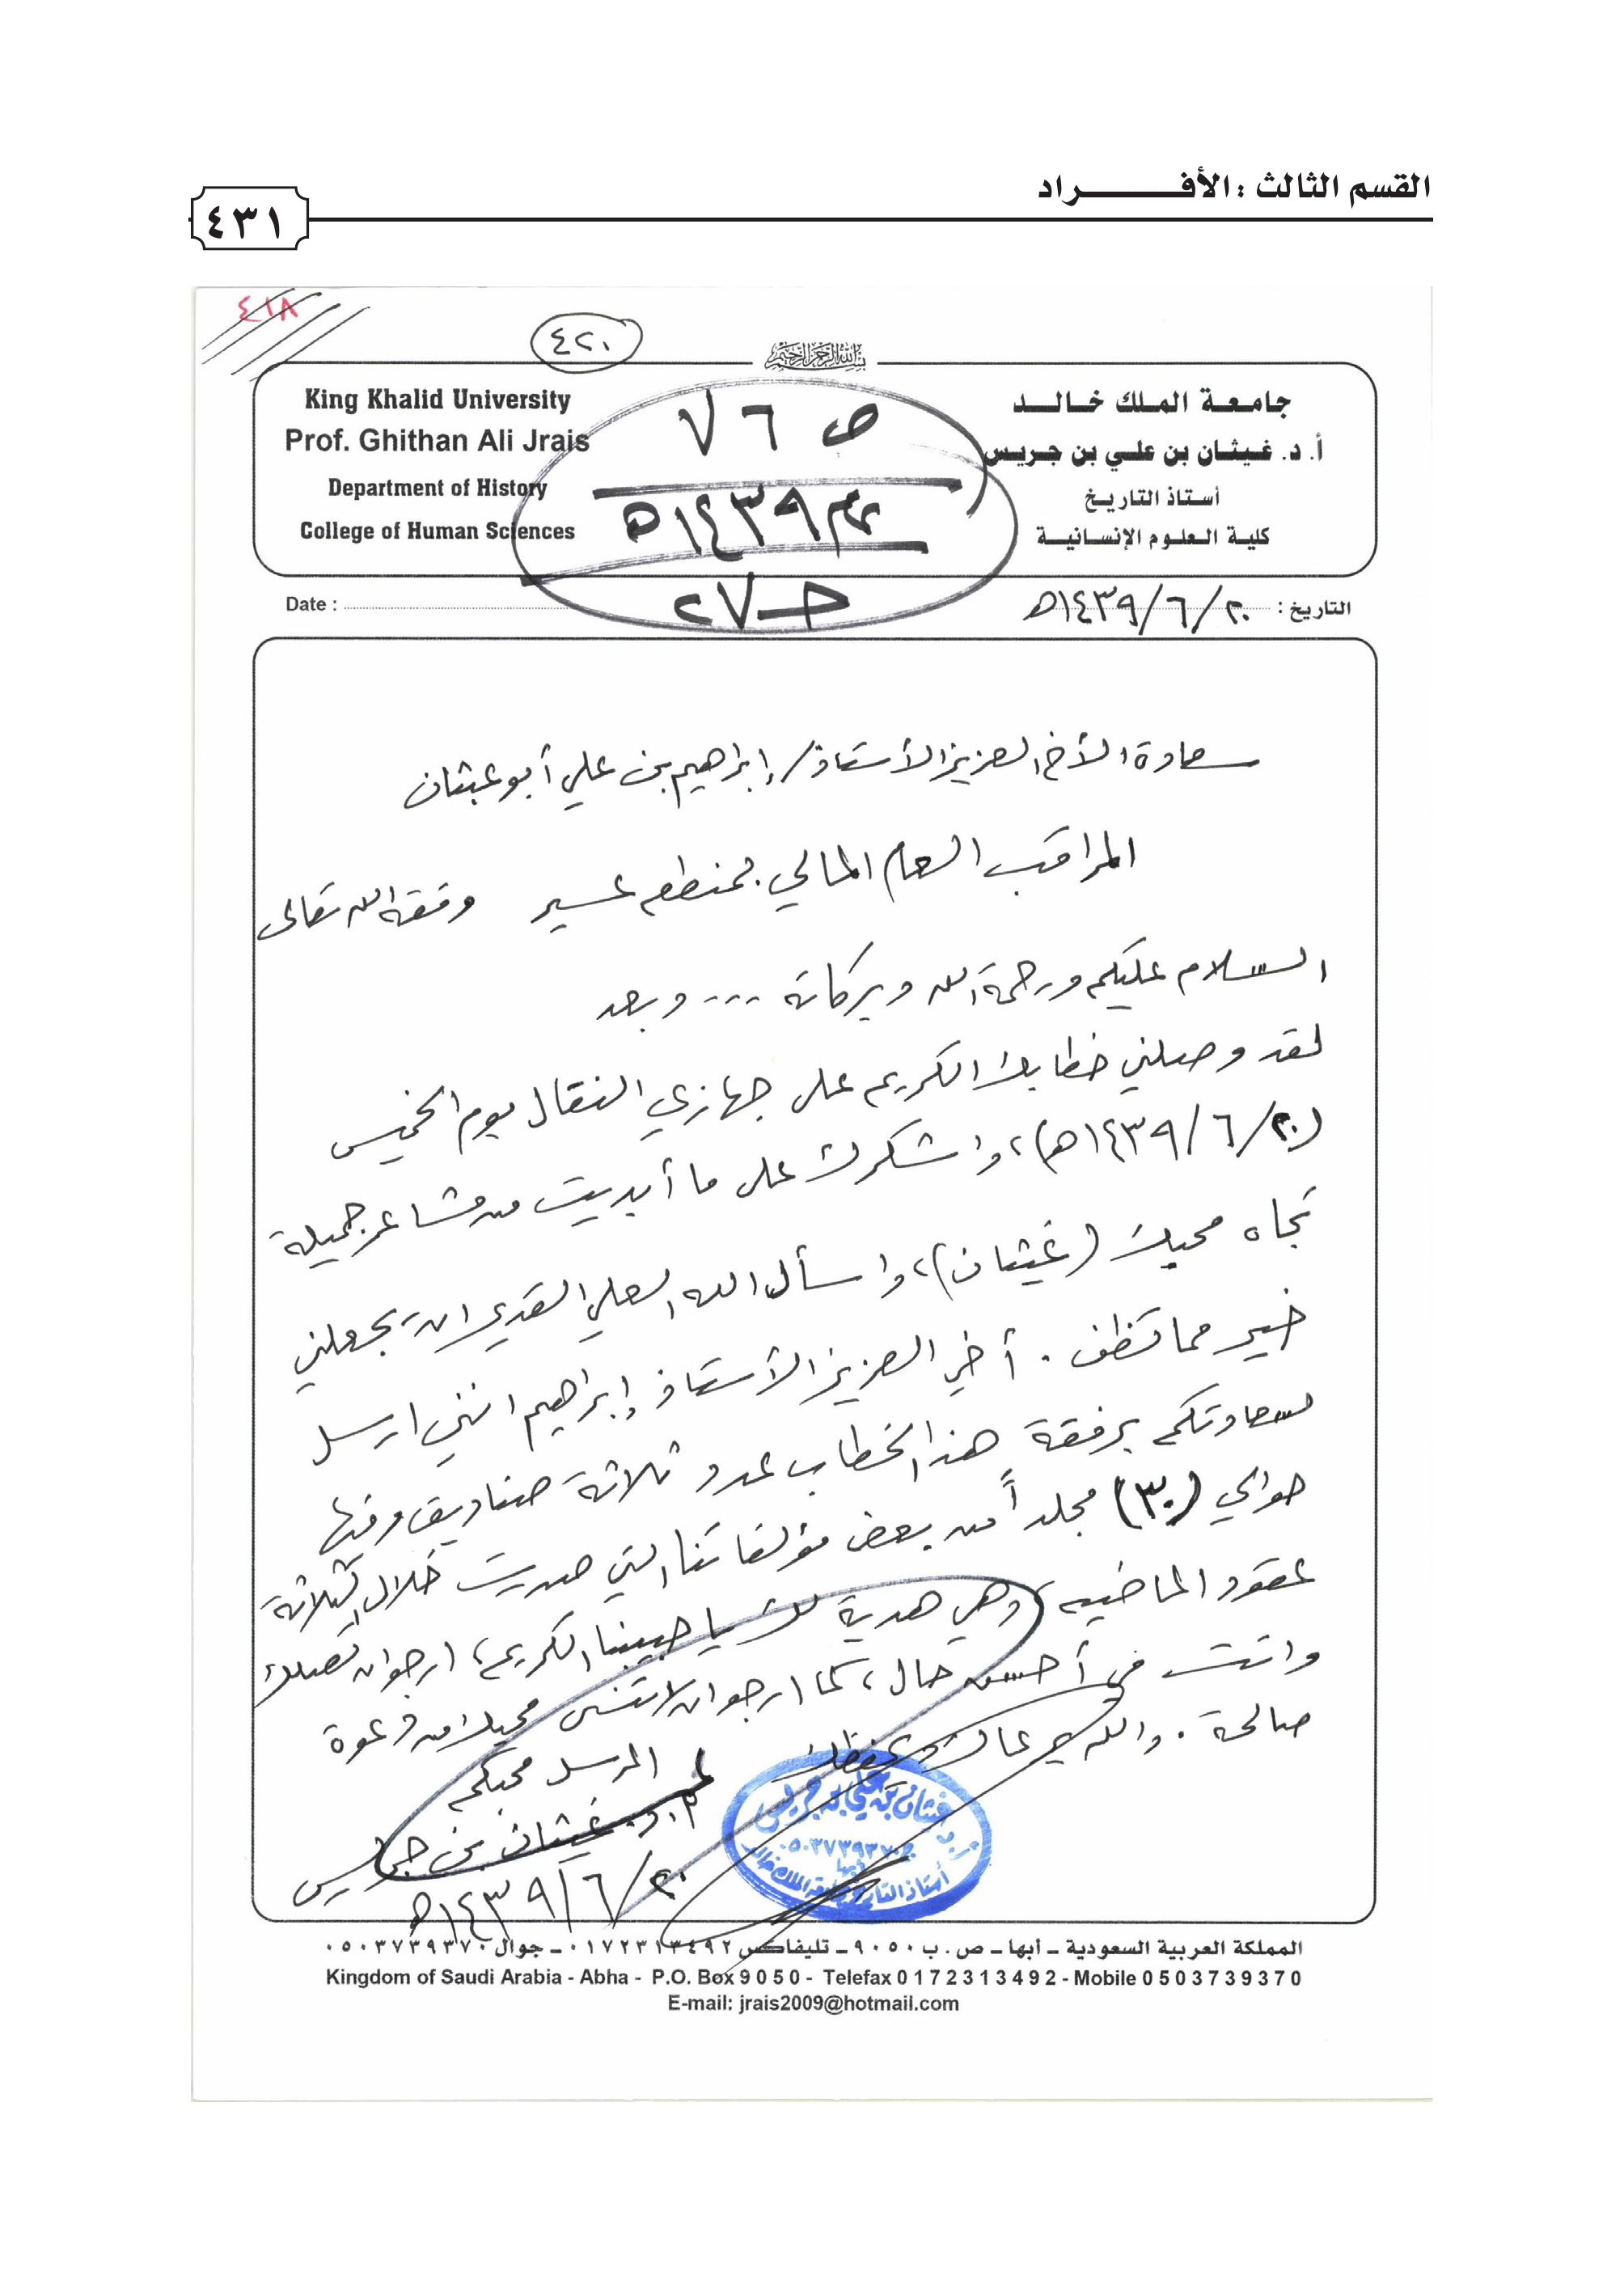 القسم الثالث : الأفـــــراد
٤٣١
٤١٨
٤٢٠
بسم الله الرحمن الرحيم
King Khalid University
Prof. Ghithan Ali Jrais
Department of History
College of Human Sciences
جامعة الملك خالد
أ. د. غيثان بن علي بن جريس
أستاذ التاريخ
كلية العلوم الإنسانية
ص ٦ ٧
عام ١٤٣٩هـ
جـ ٢٧
Date :
التاريخ : ٢٠/٦/١٤٣٩هـ
سعادة الأخ العزيز الأستاذ/ إبراهيم بن علي أبو عبثان
المراقب العام المالي بمنطقة عسير وفقه الله تعالى
السلام عليكم ورحمة الله وبركاته ... وبعد
لقد وصلني خطابك الكريم على جهازي النقال يوم الخميس
(٢٠/٦/١٤٣٩هـ)، واشكرك على ما أبديت من مشاعر جميلة
تجاه محبك (غيثان)، واسأل الله العلي القدير ان يجعلني
خير مما تظن . أخي العزيز الأستاذ إبراهيم انني ارسل
لسعادتكم برفقة هذا الخطاب عدد ثلاثة صناديق وفيها
حوالي (٣٠) مجلداً من بعض مؤلفاتنا التي صدرت خلال الثلاثة
عقود الماضيه، وهي هدية لك يا حبيبنا الكريم، ارجو ان تصلك
وانت في أحسن حال، كما ارجو ان لا تنسى محبك من دعوة
صالحة . والله يرعاك ويحفظك
المرسل محبكم
أ.د. غيثان بن جريس
٢٠/٦/١٤٣٩هـ
أ.د غيثان بن علي بن جريس
ج ٠٥٠٣٧٣٩٣٧٠
أبها
أستاذ التاريخ بجامعة الملك خالد
المملكة العربية السعودية ـ أبها ـ ص . ب ٩٠٥٠ ـ تليفاكس ٠١٧٢٣١٣٤٩٢ ـ جوال ٠٥٠٣٧٣٩٣٧٠
Kingdom of Saudi Arabia - Abha - P.O. Box 9 0 5 0 - Telefax 0 1 7 2 3 1 3 4 9 2 - Mobile 0 5 0 3 7 3 9 3 7 0
E-mail: jrais2009@hotmail.com